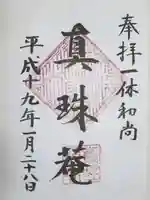 奉拝一休和尚
真珠庵
平成十九年一月二十八日